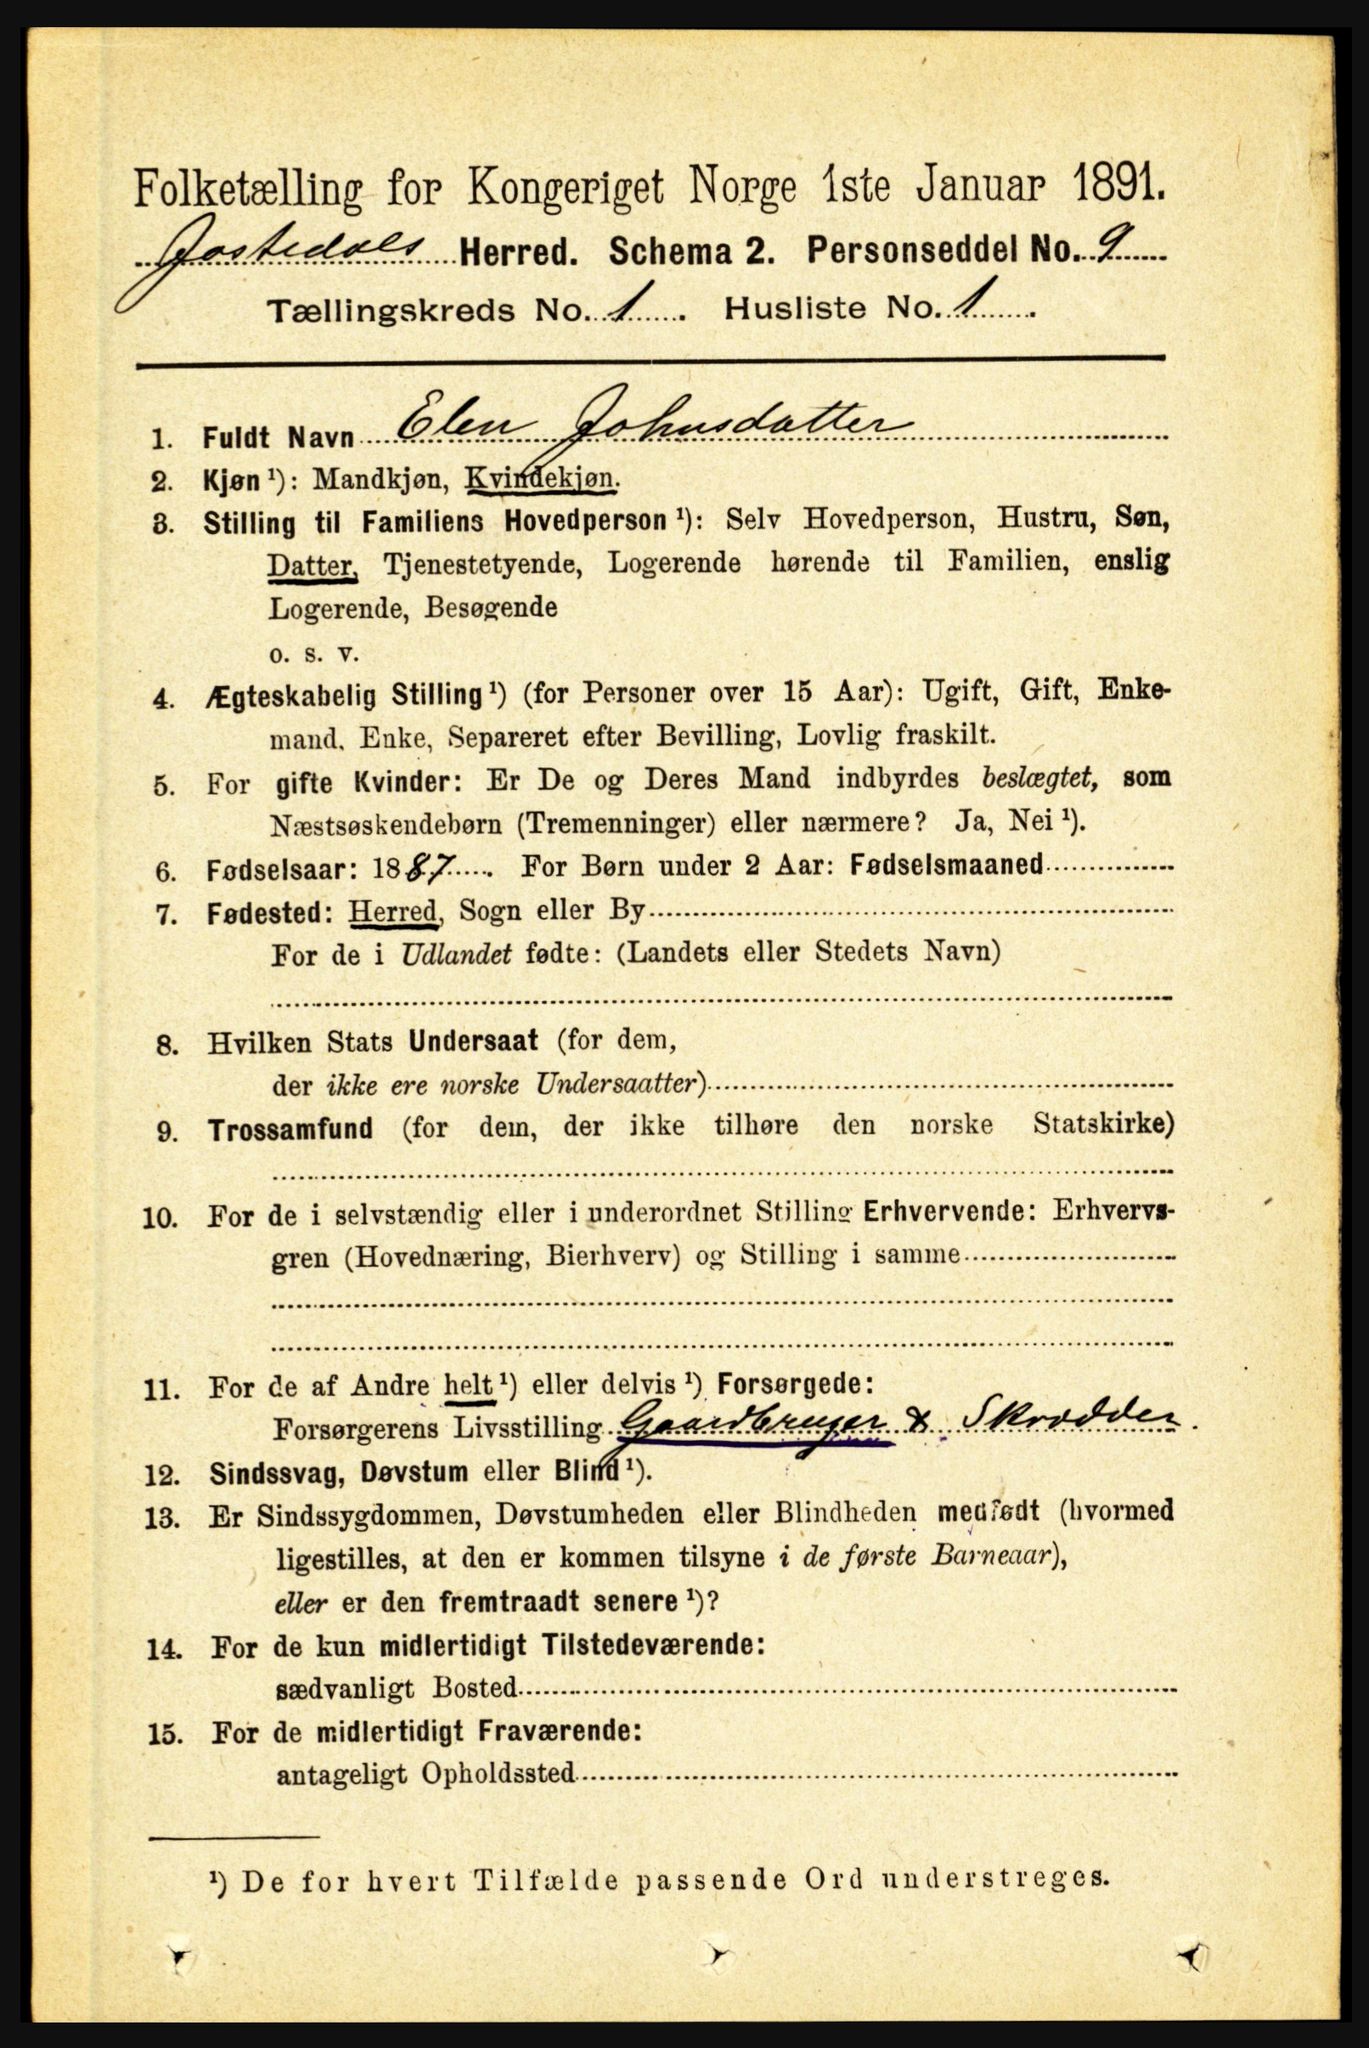 Folketælling for Kongeriget Norge 1ste Januar 1891.
Jostedals Herred. Schema 2. Personseddel No. 9
Tællingskreds No. 1. Husliste No. 1.
1. Fuldt Navn Elen Johnsdatter
2. Kjøn ¹): Mandkjøn, Kvindekjøn.
3. Stilling til Familiens Hovedperson ¹): Selv Hovedperson, Hustru, Søn,
Datter, Tjenestetyende, Logerende hørende til Familien, enslig
Logerende, Besøgende
o. s. v.
4. Ægteskabelig Stilling ¹) (for Personer over 15 Aar): Ugift, Gift, Enke-
mand, Enke, Separeret efter Bevilling, Lovlig fraskilt.
5. For gifte Kvinder: Er De og Deres Mand indbyrdes beslægtet, som
Næstsøskendebørn (Tremenninger) eller nærmere? Ja, Nei ¹).
6. Fødselsaar: 1887. For Børn under 2 Aar: Fødselsmaaned
7. Fødested: Herred, Sogn eller By
For de i Udlandet fødte: (Landets eller Stedets Navn)
8. Hvilken Stats Undersaat (for dem,
der ikke ere norske Undersaatter)
9. Trossamfund (for dem, der ikke tilhøre den norske Statskirke)
10. For de i selvstændig eller i underordnet Stilling Erhvervende: Erhvervs-
gren (Hovednæring, Bierhverv) og Stilling i samme
11. For de af Andre helt ¹) eller delvis ¹) Forsørgede:
Forsørgerens Livsstilling Gaardbruger & Skrædder.
12. Sindssvag, Døvstum eller Blind ¹).
13. Er Sindssygdommen, Døvstumheden eller Blindheden medfødt (hvormed
ligestilles, at den er kommen tilsyne i de første Barneaar),
eller er den fremtraadt senere ¹)?
14. For de kun midlertidigt Tilstedeværende:
sædvanligt Bosted
15. For de midlertidigt Fraværende:
antageligt Opholdssted
¹) De for hvert Tilfælde passende Ord understreges.